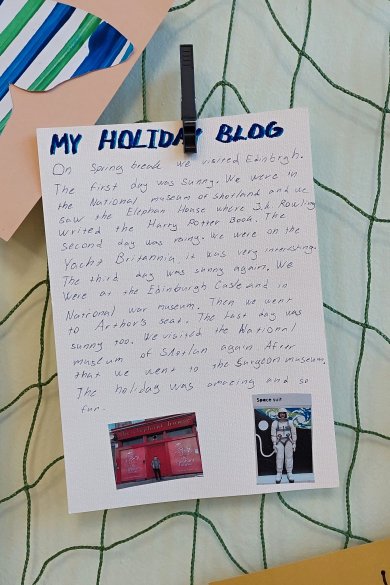 MY HOLIDAY BLOG
On Spring break we visited Edinbrgh.
The first day was sunny. We were in
the National museum of Shotland and we
saw the Elephan House where J.k. Rowling
writed the Harry Potter Book. The
second day was rainy. We were on the
Yacht Britannia it was very interesting.
The third day was sunny again. We
were at the Edinburgh Casle and in
National war museum. Then we went
to Arthor's seat. The last day was
sunny too. We visited the National
museum of Skotlan again After
that we went to the Surgeon museum.
The holiday was amazing and so
fun.
Space suit